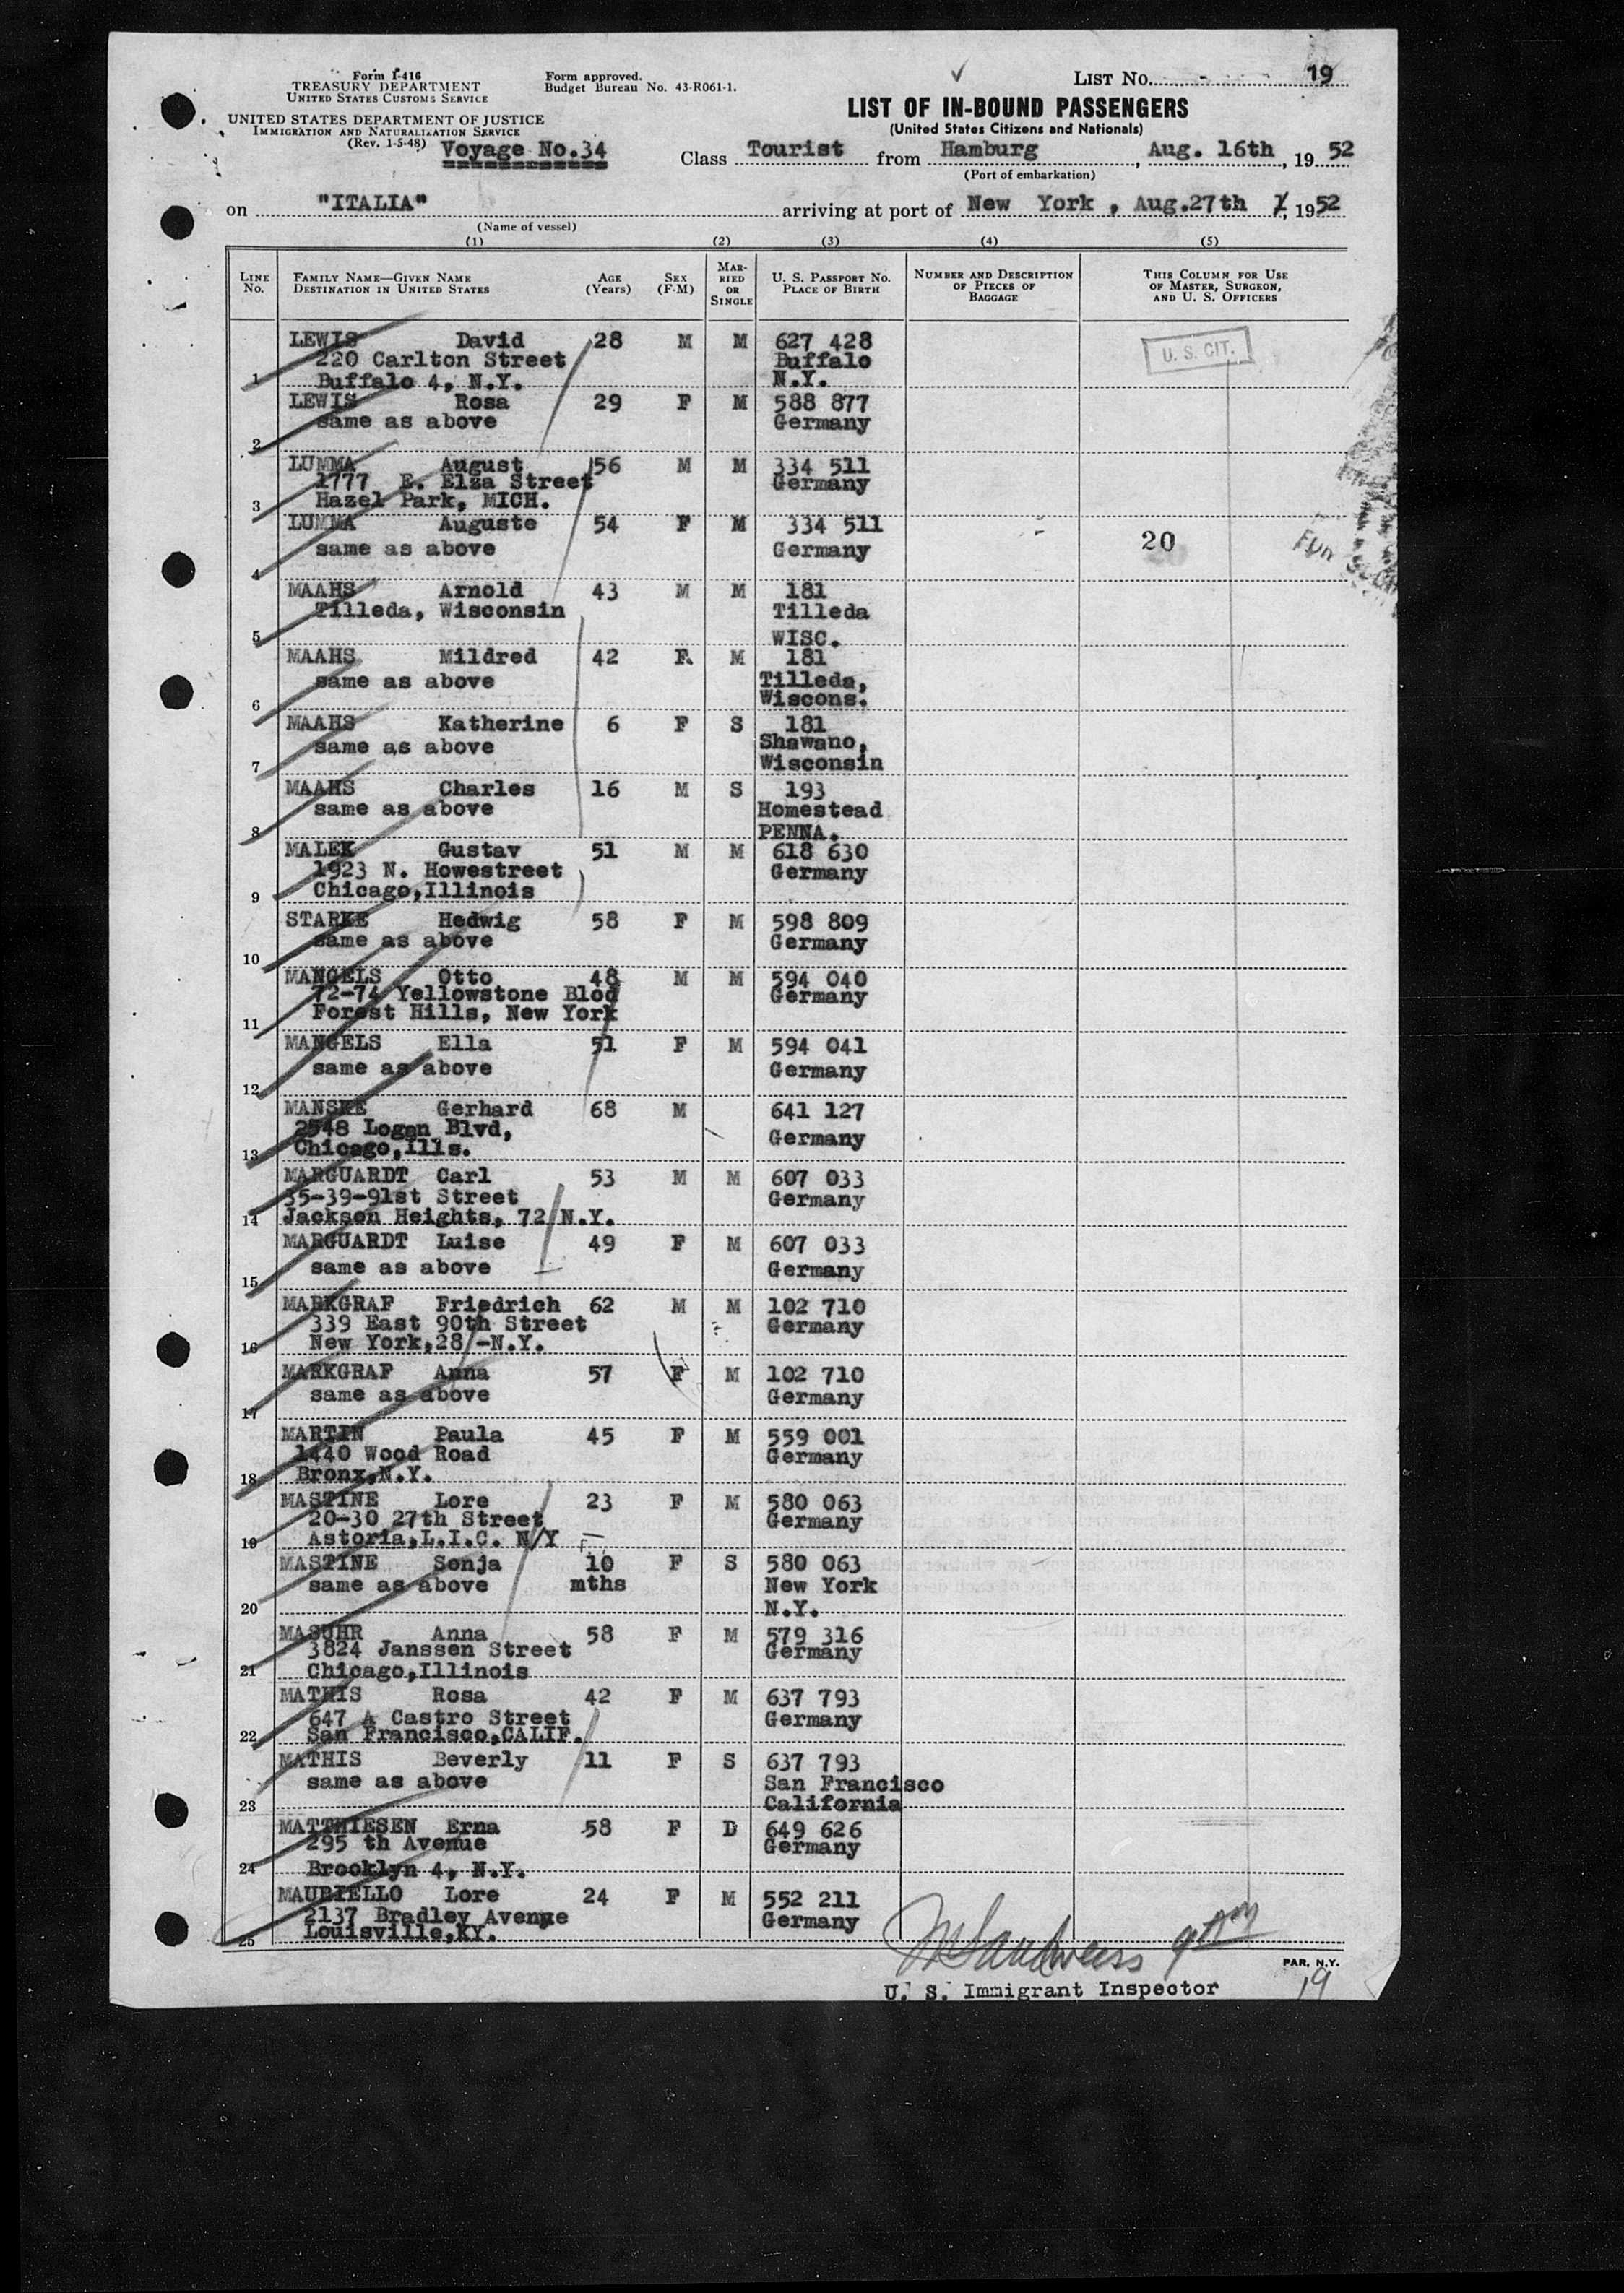 Form I-416
TREASURY DEPARTMENT
UNITED STATES CUSTOMS SERVICE
UNITED STATES DEPARTMENT OF JUSTICE
IMMIGRATION AND NATURALIZATION SERVICE
(Rev. 1-5-48)
Voyage No.34
Form approved.
Budget Bureau No. 43-R061-1.
LIST No. 19
LIST OF IN-BOUND PASSENGERS
(United States Citizens and Nationals)
Class Tourist from Hamburg, Aug. 16th, 19 52
(Port of embarkation)
on "ITALIA" arriving at port of New York, Aug.27th, 1952
(Name of vessel)
(1) (2) (3) (4) (5)
LINE No. FAMILY NAME—GIVEN NAME DESTINATION IN UNITED STATES AGE (Years) SEX (F-M) MARRIED OR SINGLE U. S. PASSPORT NO. PLACE OF BIRTH NUMBER AND DESCRIPTION OF PIECES OF BAGGAGE THIS COLUMN FOR USE OF MASTER, SURGEON, AND U. S. OFFICERS
LEWIS David 28 M M 627 428
220 Carlton Street Buffalo
1 Buffalo 4, N.Y. N.Y.
U. S. CIT.
LEWIS Rosa 29 F M 588 877
same as above Germany
2
LUMMA August 56 M M 334 511
1777 E. Elza Street Germany
3 Hazel Park, MICH.
LUMMA Auguste 54 F M 334 511
same as above Germany
20
4
MAAHS Arnold 43 M M 181
Tilleda, Wisconsin Tilleda
5 WISC.
MAAHS Mildred 42 F. M 181
same as above Tilleda,
6 Wiscons.
MAAHS Katherine 6 F S 181
same as above Shawano,
7 Wisconsin
MAAHS Charles 16 M S 193
same as above Homestead
8 PENNA.
MALEK Gustav 51 M M 618 630
1923 N. Howestreet Germany
9 Chicago,Illinois
STARKE Hedwig 58 F M 598 809
same as above Germany
10
MANGELS Otto 48 M M 594 040
72-74 Yellowstone Blod Germany
11 Forest Hills, New York
MANGELS Ella 51 F M 594 041
same as above Germany
12
MANSKE Gerhard 68 M 641 127
2548 Logan Blvd, Germany
13 Chicago,Ills.
MARGUARDT Carl 53 M M 607 033
35-39-91st Street Germany
14 Jackson Heights, 72 N.Y.
MARGUARDT Luise 49 F M 607 033
same as above Germany
15
MARKGRAF Friedrich 62 M M 102 710
339 East 90th Street Germany
16 New York,28 -N.Y.
MARKGRAF Anna 57 F M 102 710
same as above Germany
17
MARTIN Paula 45 F M 559 001
1440 Wood Road Germany
18 Bronx,N.Y.
MASTINE Lore 23 F M 580 063
20-30 27th Street Germany
19 Astoria,L.I.C. N/Y
MASTINE Sonja 10 F S 580 063
same as above mths New York
20 N.Y.
MASUHR Anna 58 F M 579 316
3824 Janssen Street Germany
21 Chicago,Illinois
MATHIS Rosa 42 F M 637 793
647 A Castro Street Germany
22 San Francisco,CALIF.
MATHIS Beverly 11 F S 637 793
same as above San Francisco
23 California
MATTHIESEN Erna 58 F D 649 626
295 th Avenue Germany
24 Brooklyn 4, N.Y.
MAURIELLO Lore 24 F M 552 211
2137 Bradley Avenue Germany
25 Louisville,KY.
U. S. Immigrant Inspector
PAR. N.Y.
19